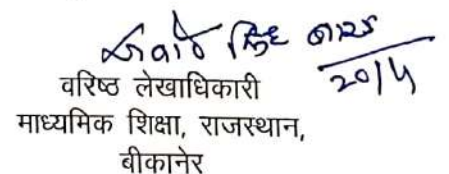 20/5
वरिष्ठ लेखाधिकारी
माध्यमिक शिक्षा, राजस्थान,
बीकानेर